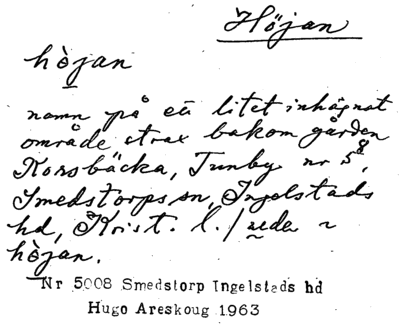 Höjan
höjan
namn på ett litet inhägnat
område strax bakom gården
Korsbäcka, Tunby nr 5⁸,
Smedstorps sn, Ingelstads
hd, Krist. l. / neda
höjan.
Nr 5008 Smedstorp Ingelstads hd
Hugo Areskoug 1963